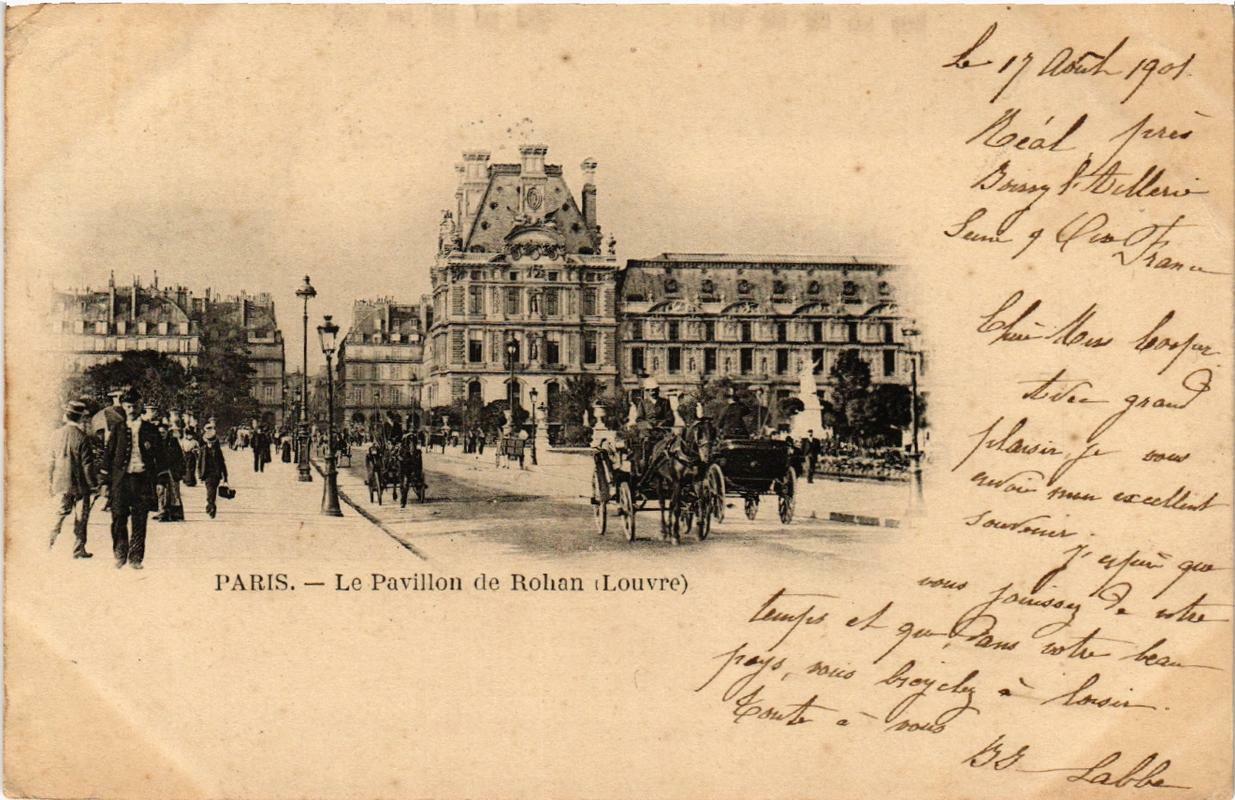 Le 17 Août 1901.
Réal près
Boissy l'Aillerie
Seine & Oise France
Chère Miss Cooper
Avec grand
plaisir, je vous
envoie mon excellent
souvenir.
J'espère que
vous jouissez de votre
temps et que, dans votre beau
pays, vous bicyclez à loisir.
Toute à vous
Labbe
PARIS. — Le Pavillon de Rohan (Louvre)